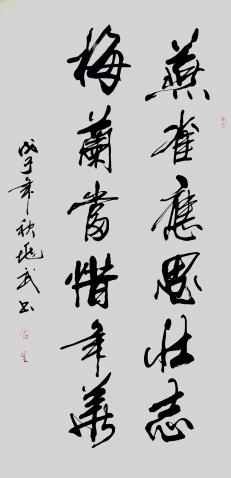 燕雀應思壯志
梅蘭當惜年華
戊子年秋